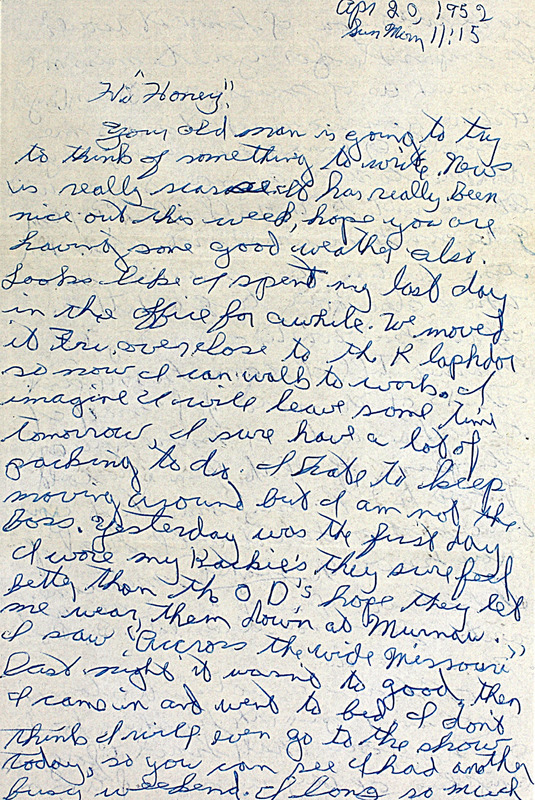 Apr 20, 1952
Sun Morn, 11:15
Hi "Honey",
Your old man is going to try
to think of something to write. News
is really scarse. It has really been
nice out this week, hope you are
having some good weather also.
Looks like I spent my last day
in the office for awhile. We moved
it Fri. over close to the
so now I can walk to work. I
imagine I will leave some time
tomorrow, I sure have a lot of
packing to do. I hate to keep
moving around but I am not the
boss. Yesterday was the first day
I wore my Kackie's they sure feel
better than th O D's hope they let
me wear them down at Murnau.
I saw "Accross the wide Missouri"
last night it wasn't to good, then
I came in and went to bed I don't
think I will even go to the show
today, so you can see I had another
busy weekend. I long so much